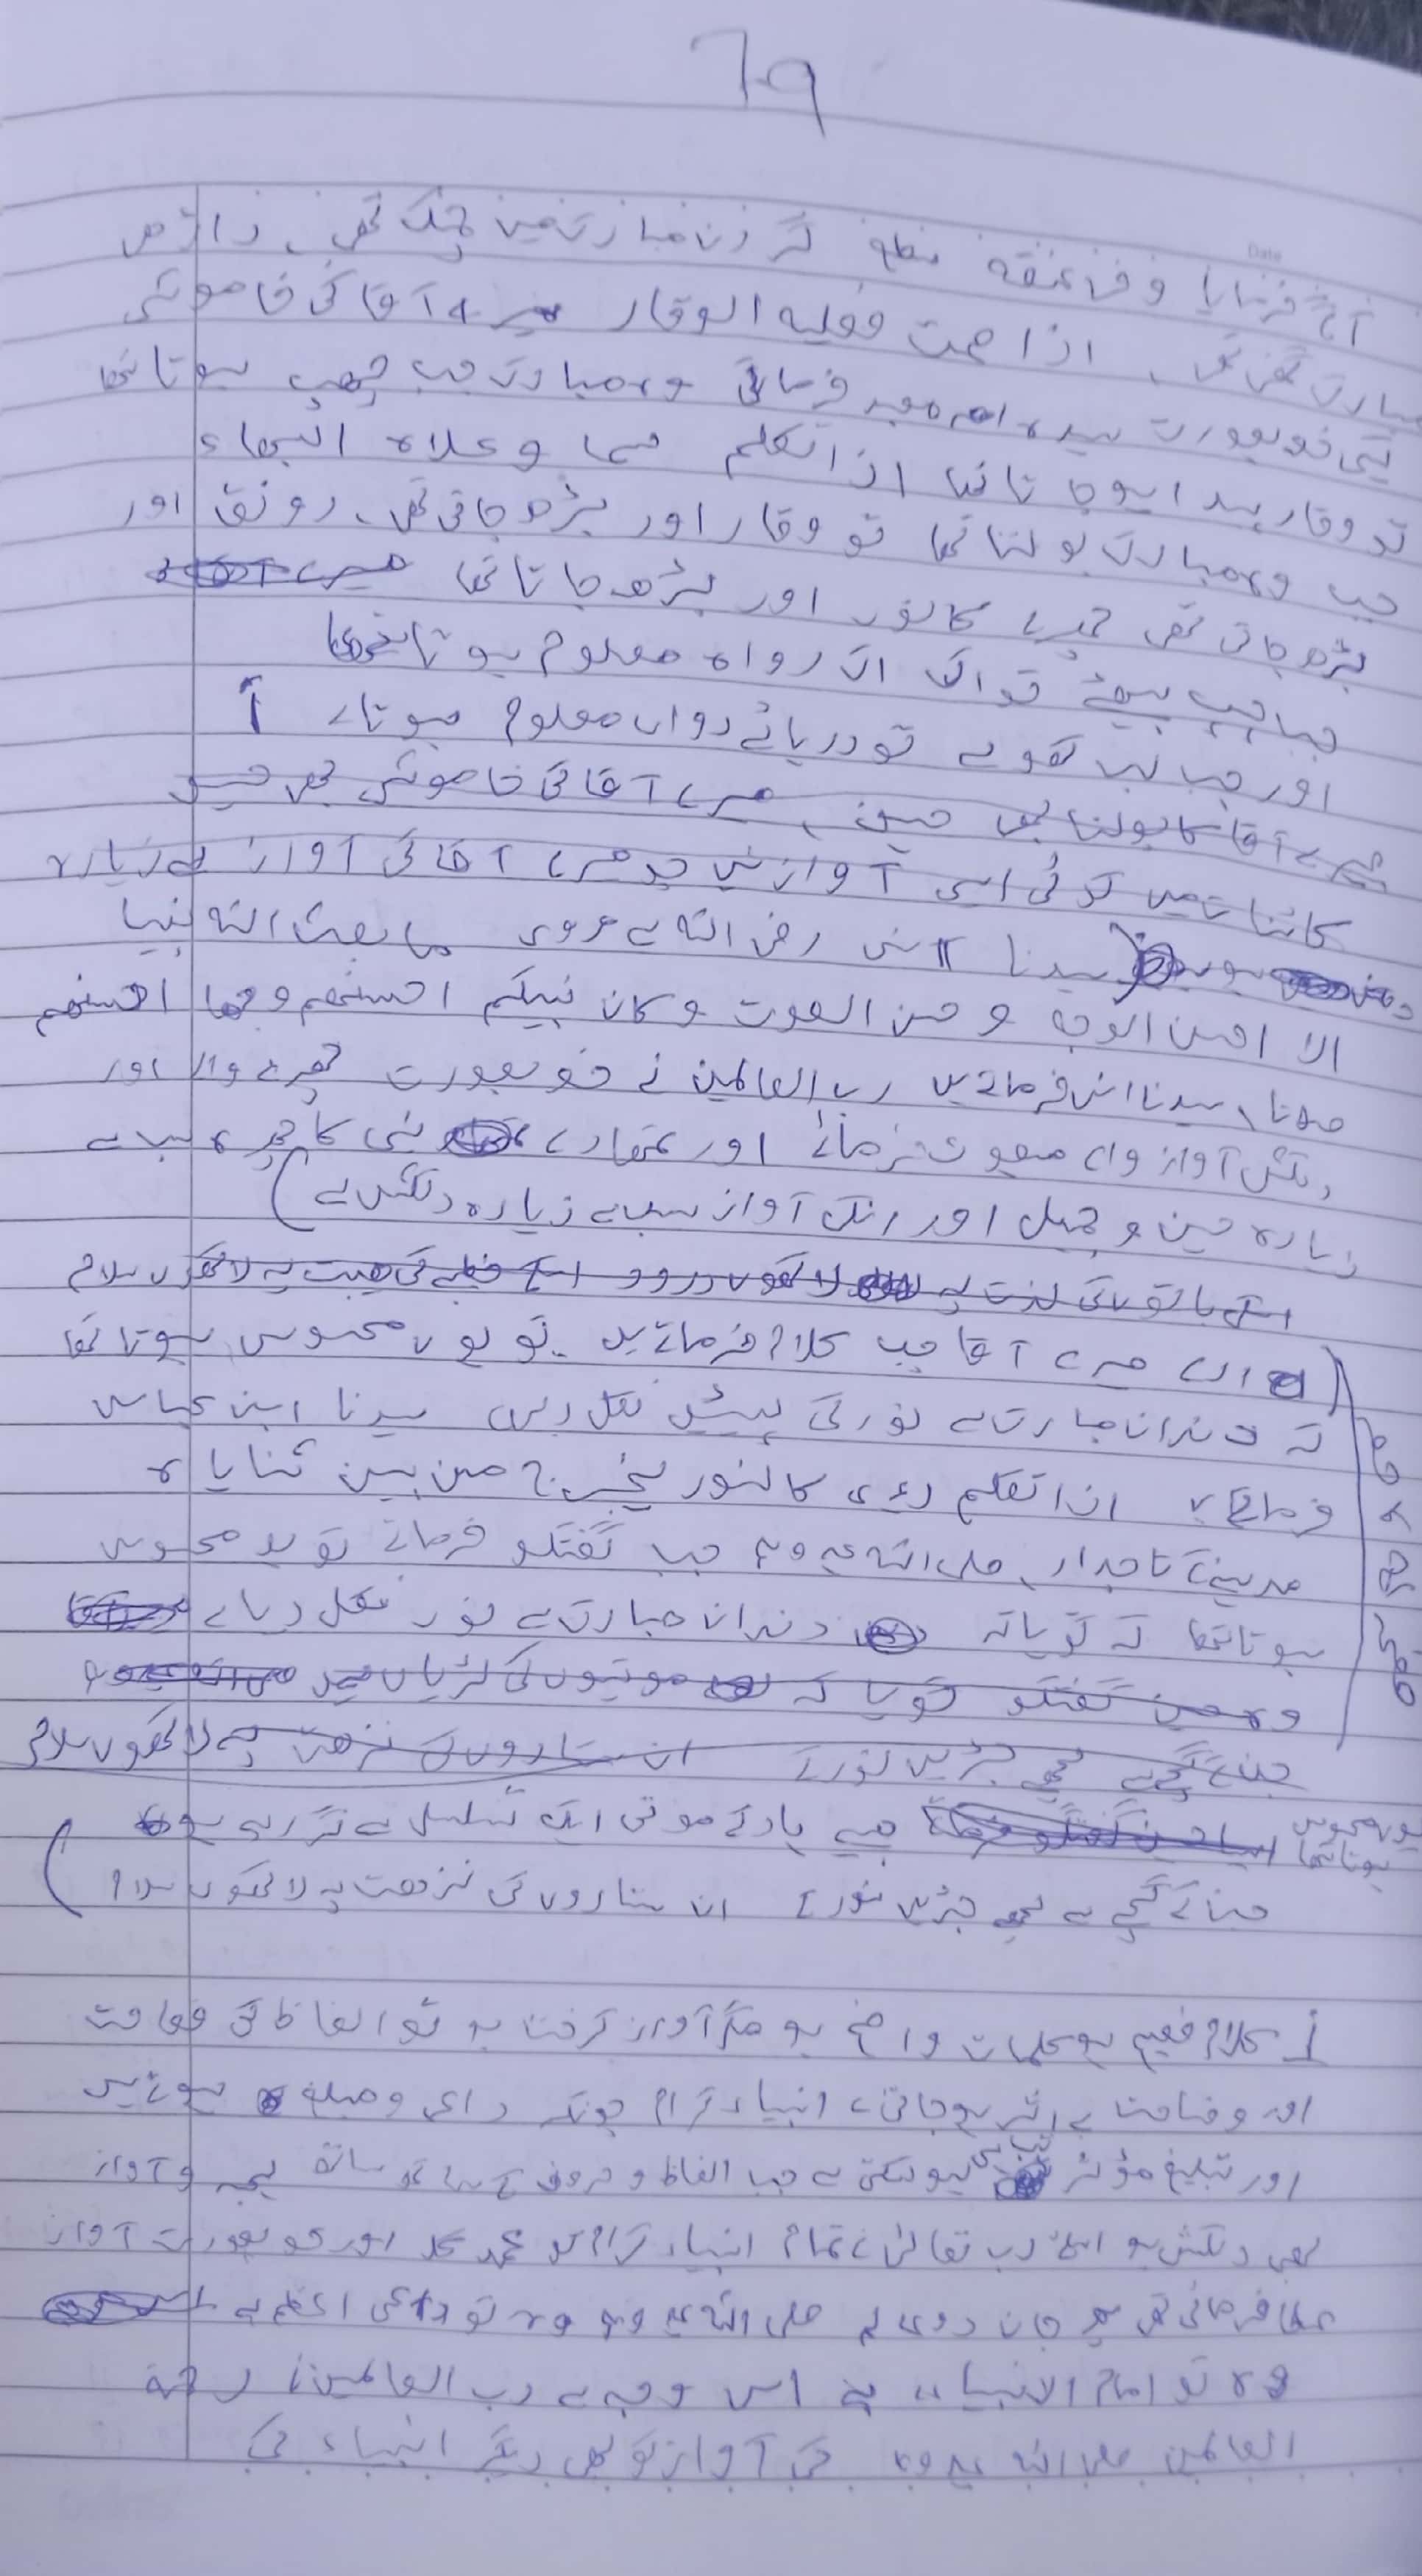 69
آگے فرمایا وفی عنقه سطع گردن مبارک میں چمک تھی، داڑھی
مبارک گھنی تھی، اذا صمت فعلیه الوقار میرے آقا کی خاموشی
کتنی خوبصورت سیدہ ام معبد فرماتی وہ مبارک جب چپ ہوتا تھا
تو وقار پیدا ہو جاتا تھا اذا تکلم سما وعلاه البهاء
جب وہ مبارک بولتا تھا تو وقار اور بڑھ جاتی تھی، رونق اور
بڑھ جاتی تھی چہرے کا نور اور بڑھ جاتا تھا
جب چپ بیٹھے تو اک معلوم ہوتا تھا
اور جب لب کھولے تو دریائے رواں معلوم ہوتا ہے
میرے آقا کا بولنا بھی حسین، میرے آقا کی خاموشی بھی حسین
کائنات میں کوئی ایسی آواز نہیں جو میرے آقا کی آواز سے زیادہ
ہو سیدنا انس رضی اللہ سے مروی ما بعث اللہ نبیا
الا احسن الوجه و حسن الصوت و کان نبیکم احسنهم وجها احسنهم
صوتا، سیدنا انس فرماتے ہیں رب العالمین نے خوبصورت چہرے والا اور
دلکش آواز والے مبعوث فرمائے اور تمھارے نبی کا چہرہ سب سے
زیادہ حسین و جمیل اور انکی آواز سب سے زیادہ دلکش ہے)
اسکی باتوں کی لذت پہ لاکھوں درود اسکے خطبے کی ہیبت پہ لاکھوں سلام
(ارے میرے آقا جب کلام فرماتے ہیں تو یوں محسوس ہوتا تھا
کہ دندان مبارک سے نور کی نکل رہیں سیدنا ابن عباس
فرماتے ہیں اذا تکلم رئی کالنور یخرج من بین ثنایاہ
مدینے کے تاجدار صلی اللہ علیہ وسلم جب گفتگو فرماتے تو یوں محسوس
ہوتا تھا کہ گویا کہ دندان مبارک سے نور نکل رہا ہے
وہ حسین گفتگو گویا کہ موتیوں کی لڑیاں
جن کے گچھے سے لچھے جھڑیں نور کے ان ستاروں کی نزھت پہ لاکھوں سلام
یوں محسوس ہوتا تھا جیسے ہار کے موتی ایک تسلسل سے گر رہے ہوں
جن کے گچھے سے لچھے جھڑیں نور کے ان ستاروں کی نزھت پہ لاکھوں سلام)
کلام فصیح ہو کلمات واضح ہو مگر آواز کرخت ہو تو الفاظ کی فصاحت
اور وضاحت بے اثر ہو جاتی ہے، انبیاء کرام چونکہ داعی و مبلغ ہوتے ہیں
اور تبلیغ مؤثر تب ہی ہو سکتی ہے جب الفاظ و حروف کے ساتھ لہجہ و آواز
بھی دلکش ہو اسلئے رب تعالیٰ نے تمام انبیاء کرام کو عمدہ گلہ اور خوبصورت آواز
عطا فرمائی تھی جان دو عالم صلی اللہ علیہ وسلم وہ تو داعی اعظم ہے
وہ تو امام الانبیاء ہے اس وجہ سے رب العالمین نے رحمۃ
العالمین صلی اللہ علیہ وسلم کی آواز کو بھی دیگر انبیاء کی